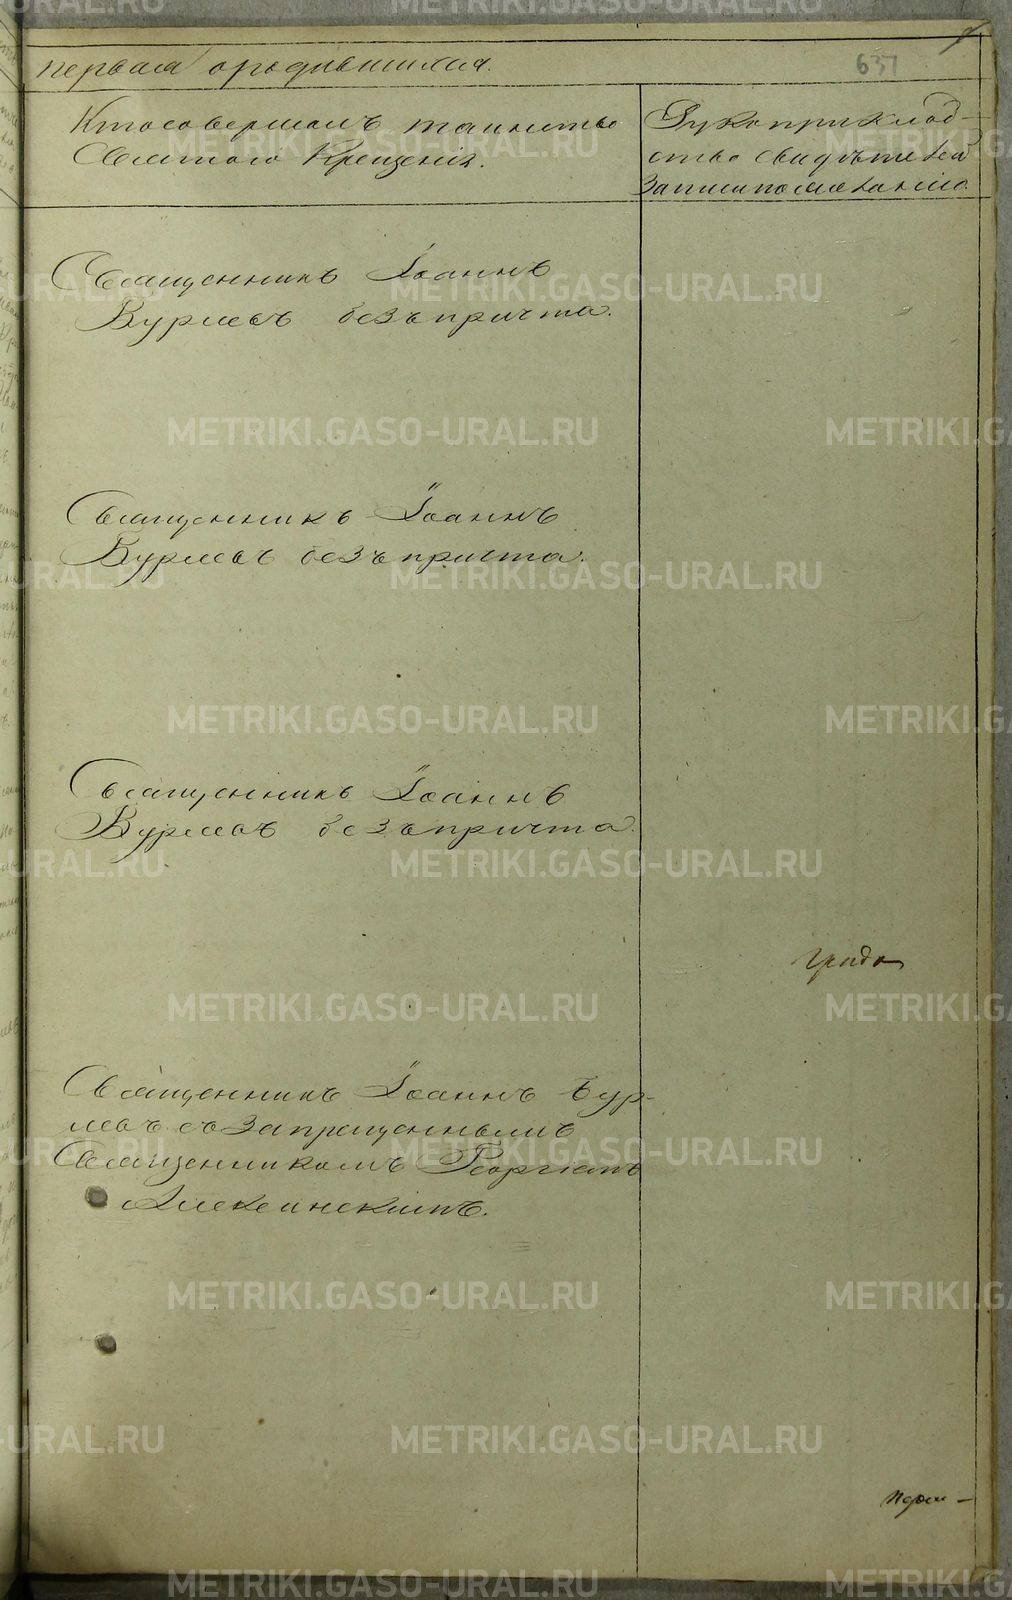 первая о родившихся.
637
Кто совершалъ таинство
Святаго Крещенія.
Рукоприклад-
ство свидѣтелей
записи по желанію.
Священникъ Іоаннъ
Бурмовъ безъ причта.
Священникъ Іоаннъ
Бурмовъ безъ причта.
Священникъ Іоаннъ
Бурмовъ безъ причта.
Священникъ Іоаннъ Бур-
мовъ съ запрещеннымъ
Священникомъ Георгіемъ
Алексинскимъ.
METRIKI.GASO-URAL.RU